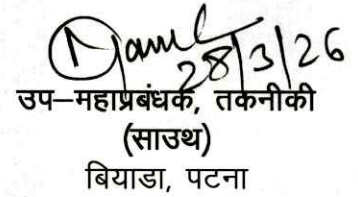 28/3/26
उप–महाप्रबंधक, तकनीकी
(साउथ)
बियाडा, पटना